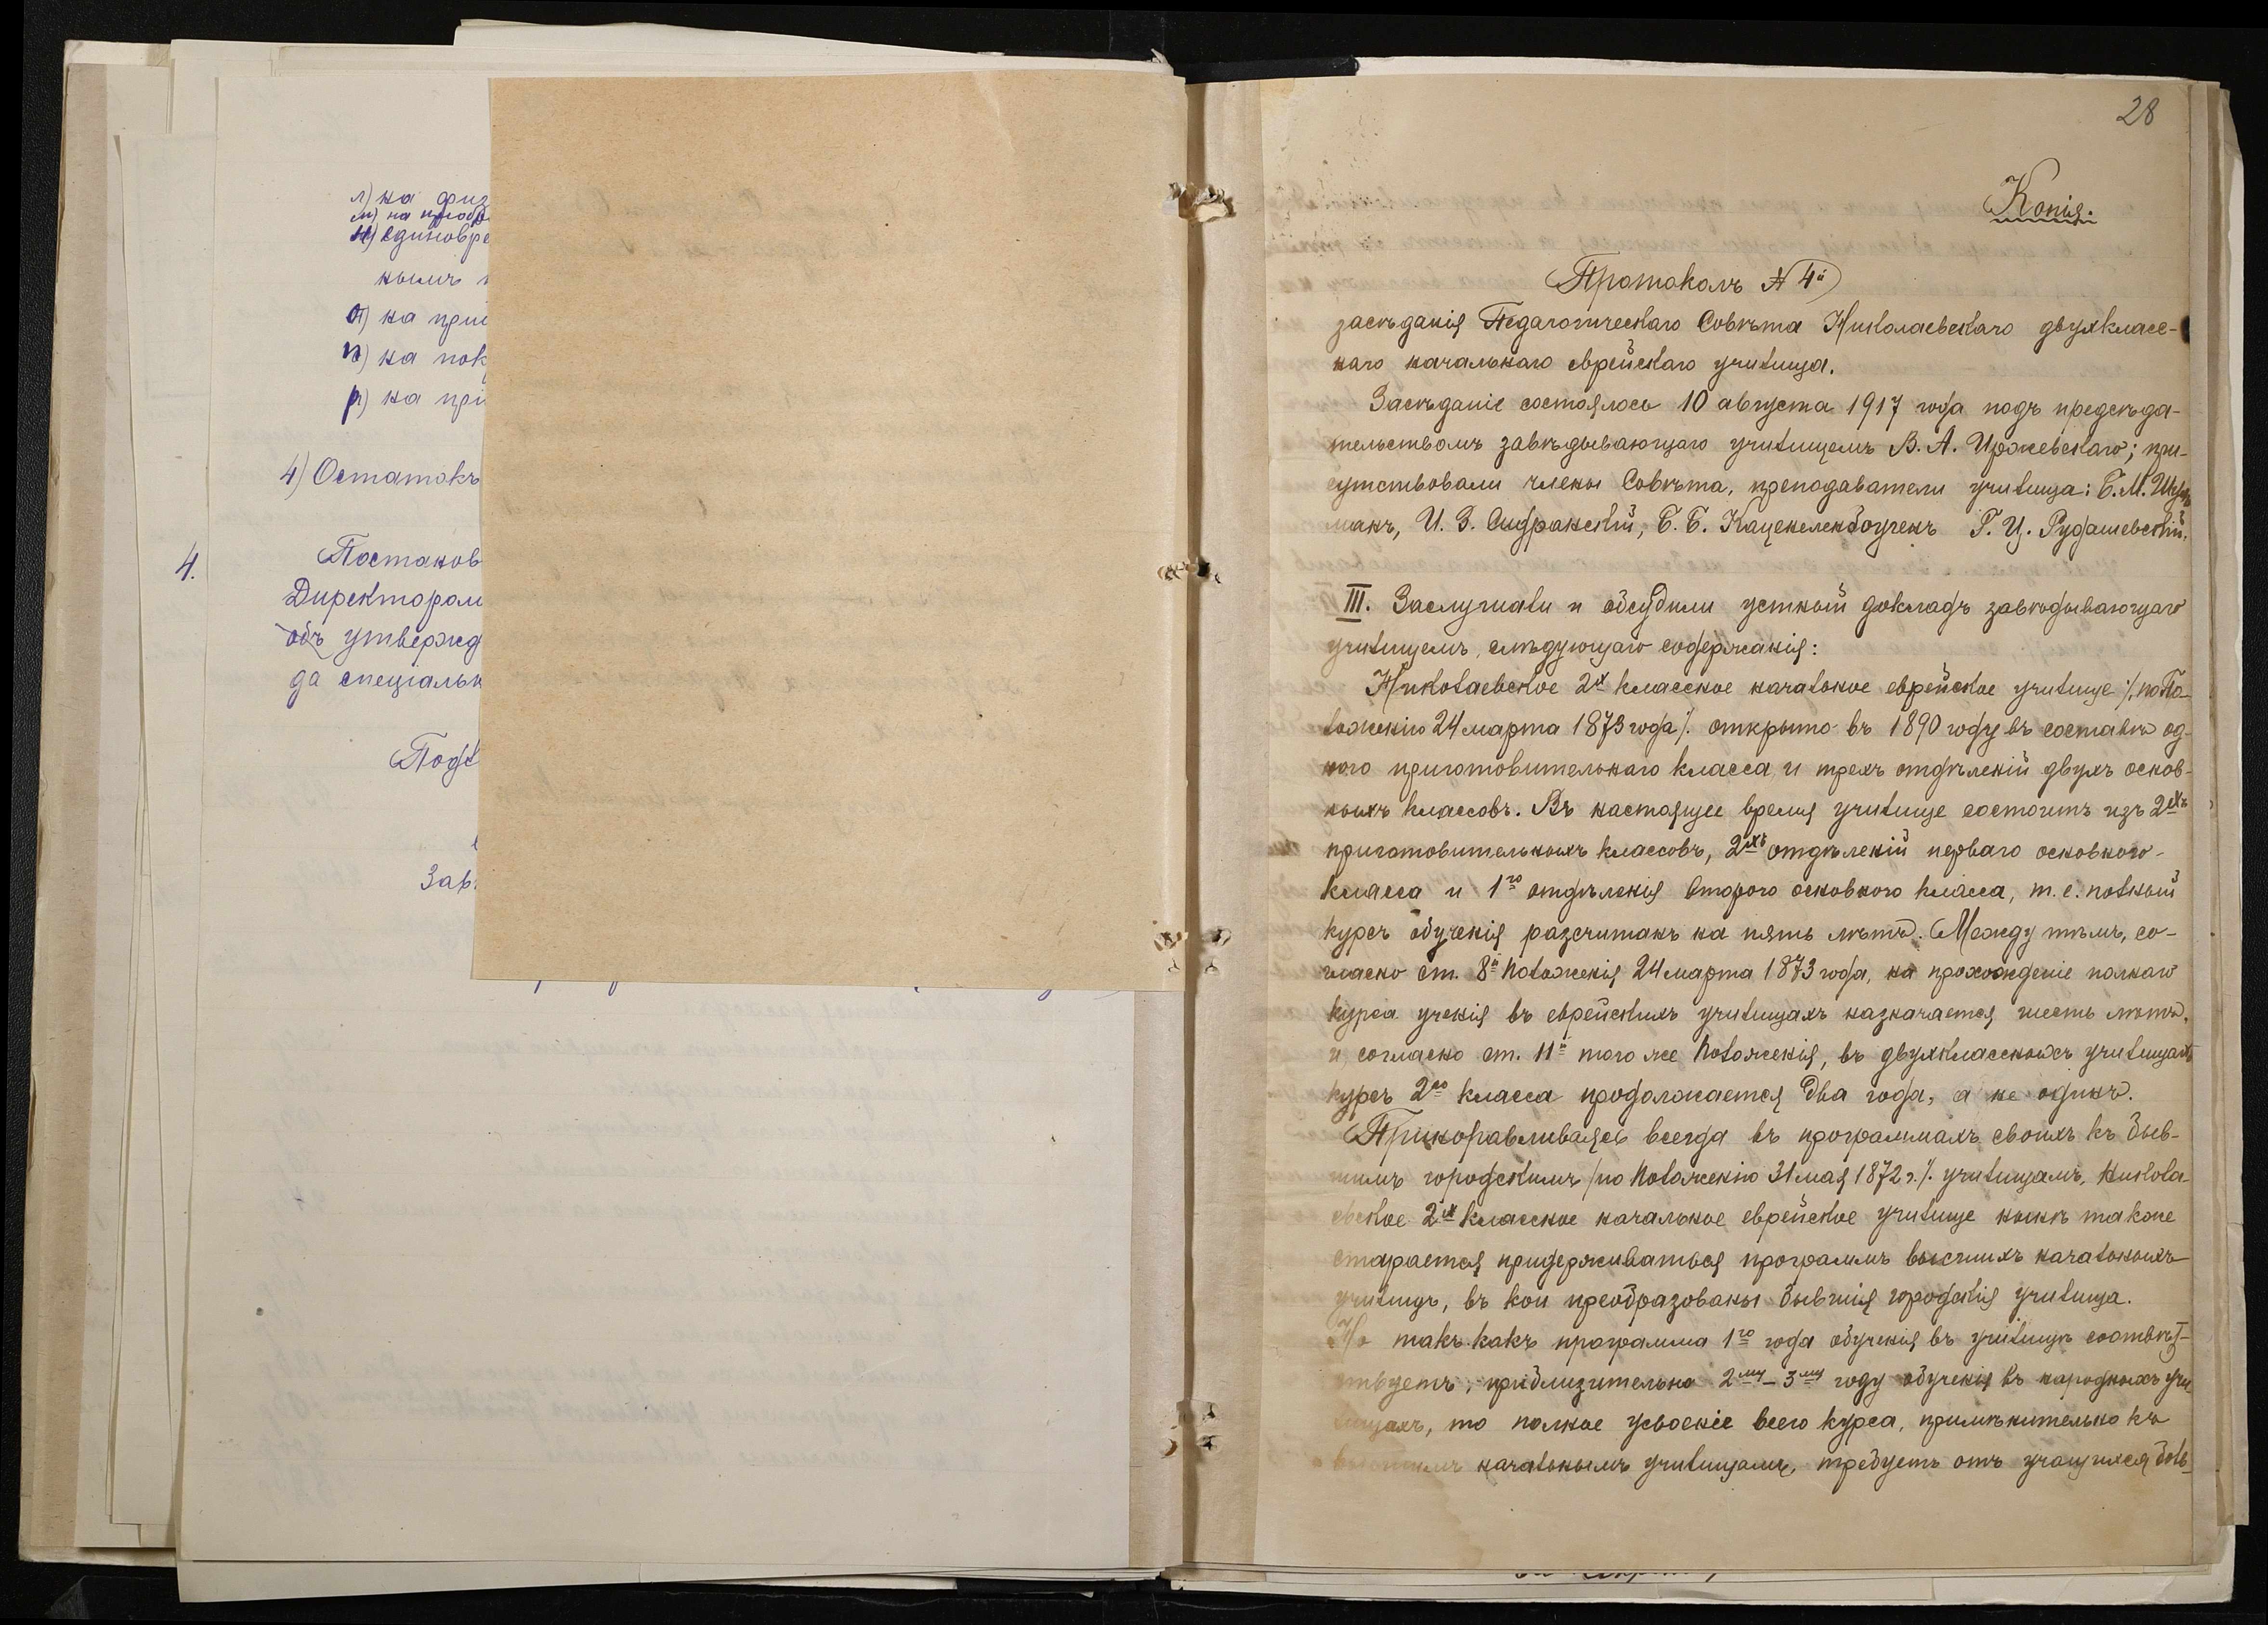 л) на физ
м) на приобр
н) единовре
нымъ
о) на при
п) на пок
р) на при
4) Остатокъ
4.
Постанов
Директором
объ утвержд
да спеціальн
Подл
Зав
28
Копія.
Протоколъ № 4й
засѣданія Педагогическаго Совѣта Николаевскаго двухкласс-
наго начальнаго еврейскаго училища.
Засѣданіе состоялось 10 августа 1917 года подъ предсѣда-
тельствомъ завѣдывающаго училищемъ В. А. Иржевскаго; при-
сутствовали члены Совѣта, преподаватели училища: Б. М.
манъ, И. З. Сифранскій, Б. Б. Каценеленбоугенъ Г. Ц. Рудашевскій.
III. Заслушали и обсудили устный докладъ завѣдывающаго
училищемъ, слѣдующаго содержанія:
Николаевское 2х классное начальное еврейское училище /. по По-
ложенію 24 марта 1873 года /. открыто въ 1890 году въ составѣ од-
ного приготовительнаго класса и трехъ отдѣленій двухъ основ-
ныхъ классовъ. Въ настоящее время училище состоитъ изъ 2ухъ
приготовительныхъ классовъ, 2ухъ отдѣленій перваго основного
класса и 1го отдѣленія второго основного класса, т. е. полный
курсъ обученія разсчитанъ на пять лѣтъ. Между тѣмъ, со-
гласно ст. 8й Положенія 24 марта 1873 года, на прохожденіе полнаго
курса ученія въ еврейскихъ училищахъ назначается шесть лѣтъ,
и, согласно ст. 11й того же Положенія, въ двухклассныхъ училищахъ
курсъ 2го класса продолжается два года, а не одинъ.
Приноравливаясь всегда въ программахъ своихъ къ быв-
шимъ городскимъ /по Положенію 31 мая 1872 г. /. училищамъ, Никола-
евское 2ух классное начальное еврейское училище нынѣ также
старается придерживаться программъ высшихъ начальныхъ
училищъ, въ кои преобразованы бывшія городскія училища.
Но такъ какъ программа 1го года обученія въ училищѣ соотвѣт-
ствуетъ, приблизительно 2му - 3му году обученія въ народныхъ учи
лищахъ, то полное усвоеніе всего курса, примѣнительно къ
высшимъ начальнымъ училищамъ, требуетъ отъ учащихся боль-